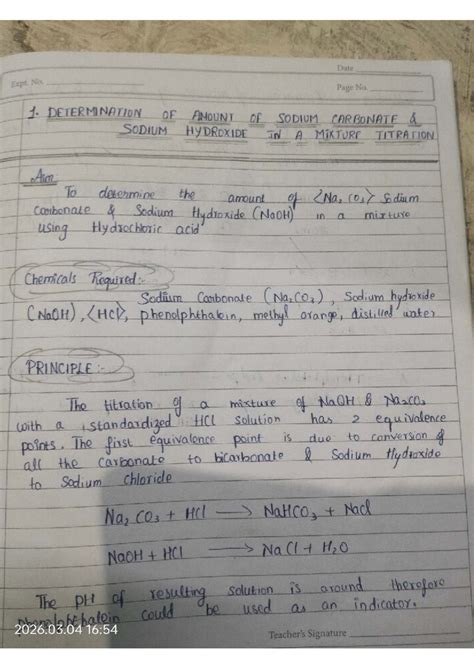 Date
Expt. No.
Page No.
1. DETERMINATION OF AMOUNT OF SODIUM CARBONATE &
SODIUM HYDROXIDE IN A MIXTURE TITRATION
Aim
To determine the amount of <Na2CO3> Sodium
Carbonate & Sodium Hydroxide (NaOH) in a mixture
using Hydrochloric acid
Chemicals Required:-
Sodium Carbonate (Na2CO3), Sodium hydroxide
(NaOH), <HCl>, phenolphthalein, methyl orange, distilled water
PRINCIPLE:-
The titration of a mixture of NaOH & Na2CO3
with a standardized HCl solution has 2 equivalence
points. The first equivalence point is due to conversion of
all the carbonate to bicarbonate & Sodium Hydroxide
to Sodium Chloride
Na2CO3 + HCl → NaHCO3 + NaCl
NaOH + HCl → NaCl + H2O
The PH of resulting solution is around therefore
phenolphthalein could be used as an indicator.
2026.03.04 16:54
Teacher's Signature